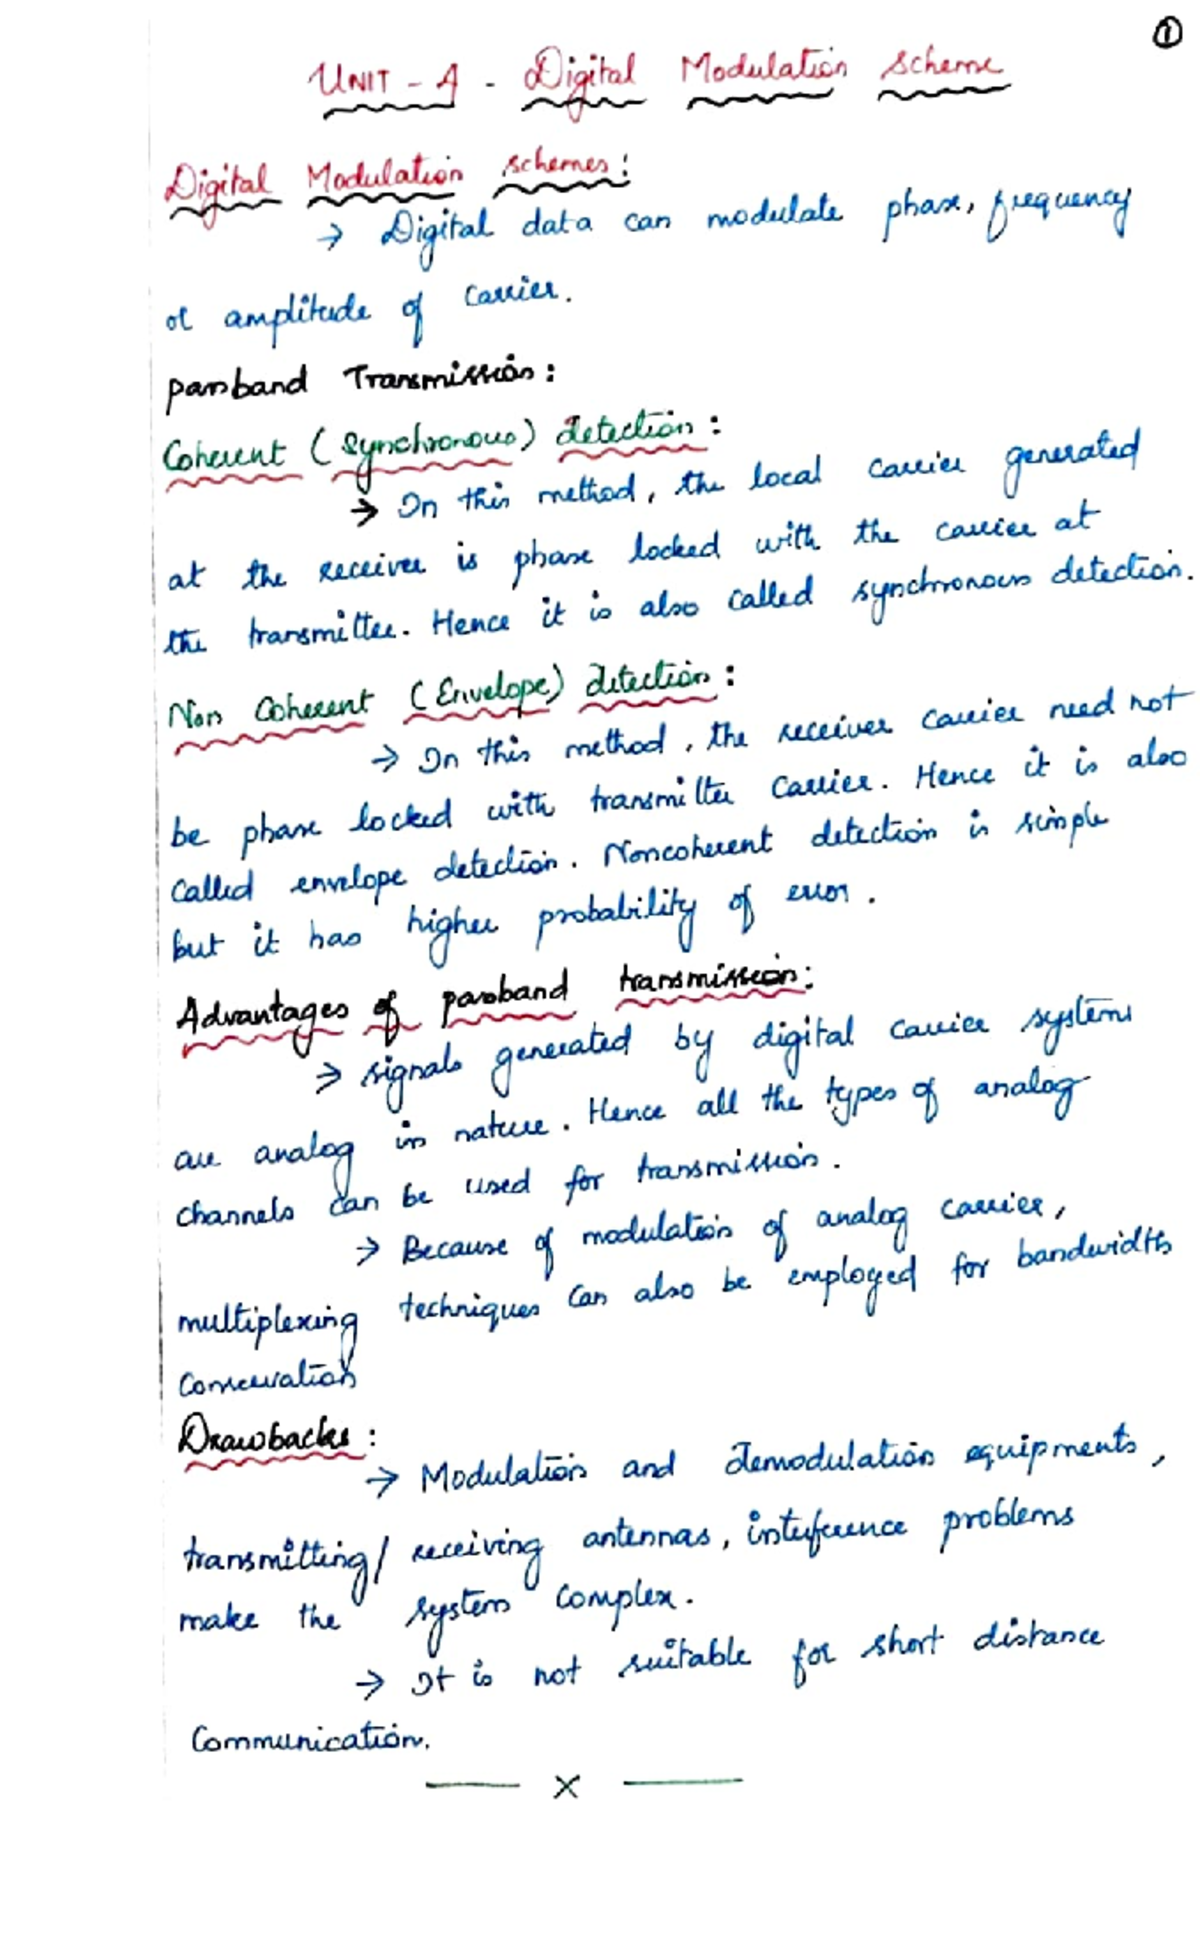 1
UNIT - 4 - Digital Modulation scheme
Digital Modulation schemes:
→ Digital data can modulate phase, frequency
or amplitude of carrier.
passband Transmission:
Coherent (synchronous) detection:
→ In this method, the local carrier generated
at the receiver is phase locked with the carrier at
the transmitter. Hence it is also called synchronous detection.
Non Coherent (Envelope) detection:
→ In this method, the receiver carrier need not
be phase locked with transmitter carrier. Hence it is also
called envelope detection. Noncoherent detection is simple
but it has higher probability of error.
Advantages of passband transmission:
→ signals generated by digital carrier systems
are analog in nature. Hence all the types of analog
channels can be used for transmission.
→ Because of modulation of analog carrier,
multiplexing techniques can also be employed for bandwidth
conservation
Drawbacks:
→ Modulation and demodulation equipments,
transmitting/ receiving antennas, interference problems
make the system complex.
→ It is not suitable for short distance
Communication.
— x —